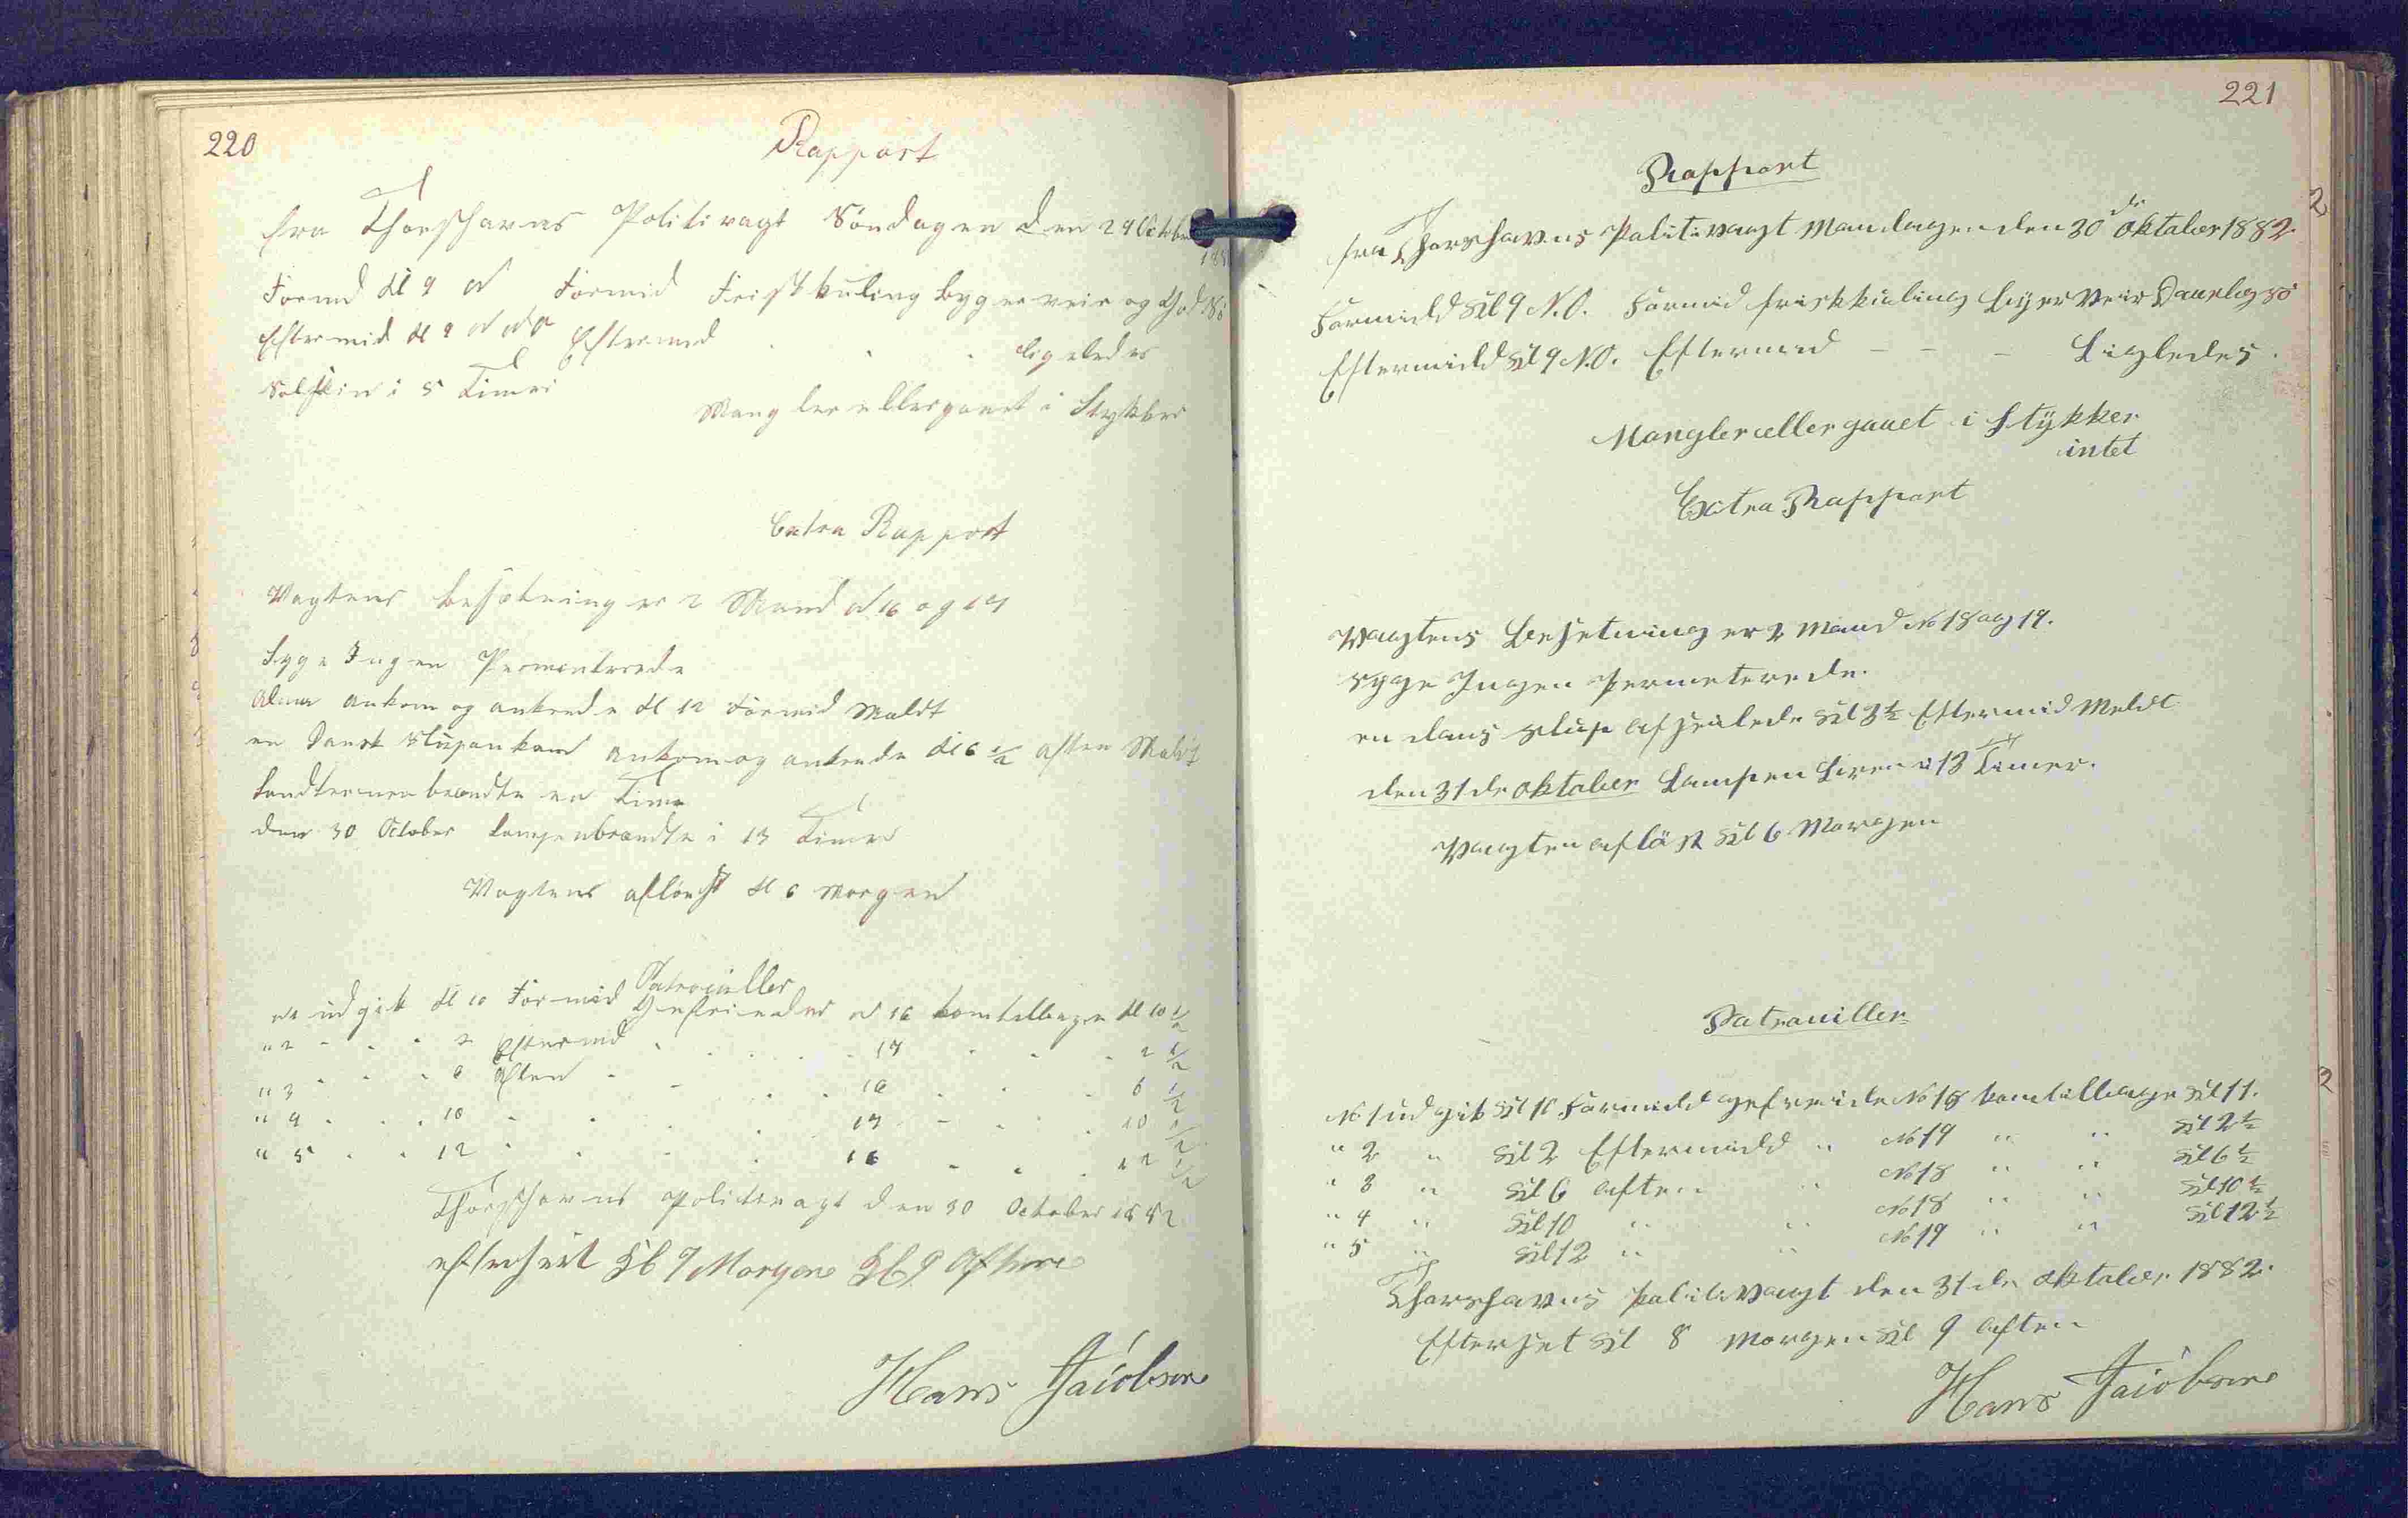 220
Rapport
fra Thorshavns Politivagt Söndagen den 29 Octobe
188
Formd Kl 9 N Formid Friskkuling byger veir og God Sö
Eftermid Kl 9 N N O Eftermd " " " ligeledes
Solskin i 5 Timer
Mangler ellergaaet i Stykker
Extra Rapport
Vagtens besætning er 2 Mand N 16 og 17
Syge Ingen Permenterede
ankom og ankrede Kl 12 Formid Maldt
en Dansk Slup ankom og ankrede Kl 6 1/2 aften Maldt
Landternen brændte en Time
den 30 October lampenbrændte i 13 Timer
Vagtens aflöst Kl 6 Morgen
Patrouiller
N 1 udgik Kl 10 Formid Gefreieder N 16 komtilbage Kl 10 1/2
" 2 - - - 2 Eftermd - - - 17 - - - 2 1/2
" 3 - - - 6 Aften - - - 16 - - - 6 1/2
" 4 - - - 10 - - - 17 - - - 10 1/2
" 5 - - 12 - - - 16 - - - 12 1/2
Thorshavns Politivagt den 30 October 1882
efterseet Kl 9 Morgen Kl 9 Aften
Hans Jacobsen
221
Rapport
fra Thorshavns Politivagt Mandagen den 30 de Oktober 1882.
Formidd Kl 9 N.O. Formid friskkuling Byer Veir Daarlig sö
Eftermidd Kl 9 N.O. Eftermid - - - Ligledes.
Mangler eller gaaet i Stykker
intet
Extra Rapport
Vagtens Besetning er 2 Mand No 18 og 19.
syge Ingen permeterede.
en dans slup afseilede Kl 3 1/2 Eftermid Meldt
den 31 de oktober Lampen Bren i 13 Timer.
Vagten aflöst Kl 6 Morgen
Patrouiller
No 1 udgik Kl 10 Formidd gefreide No 18 komtilbage Kl 11.
" 2 " Kl 2 Eftermidd " No 19 " " Kl 2 1/2
" 3 " Kl 6 aften " No 18 " " Kl 6 1/2
" 4 " Kl 10 " " No 18 " " Kl 10 1/2
" 5 " Kl 12 " " No 19 " " Kl 12 1/2
Thorshavns politivagt den 31 de oktober 1882.
Efterset Kl 8 Morgen Kl 9 aften
Hans Jacobsen